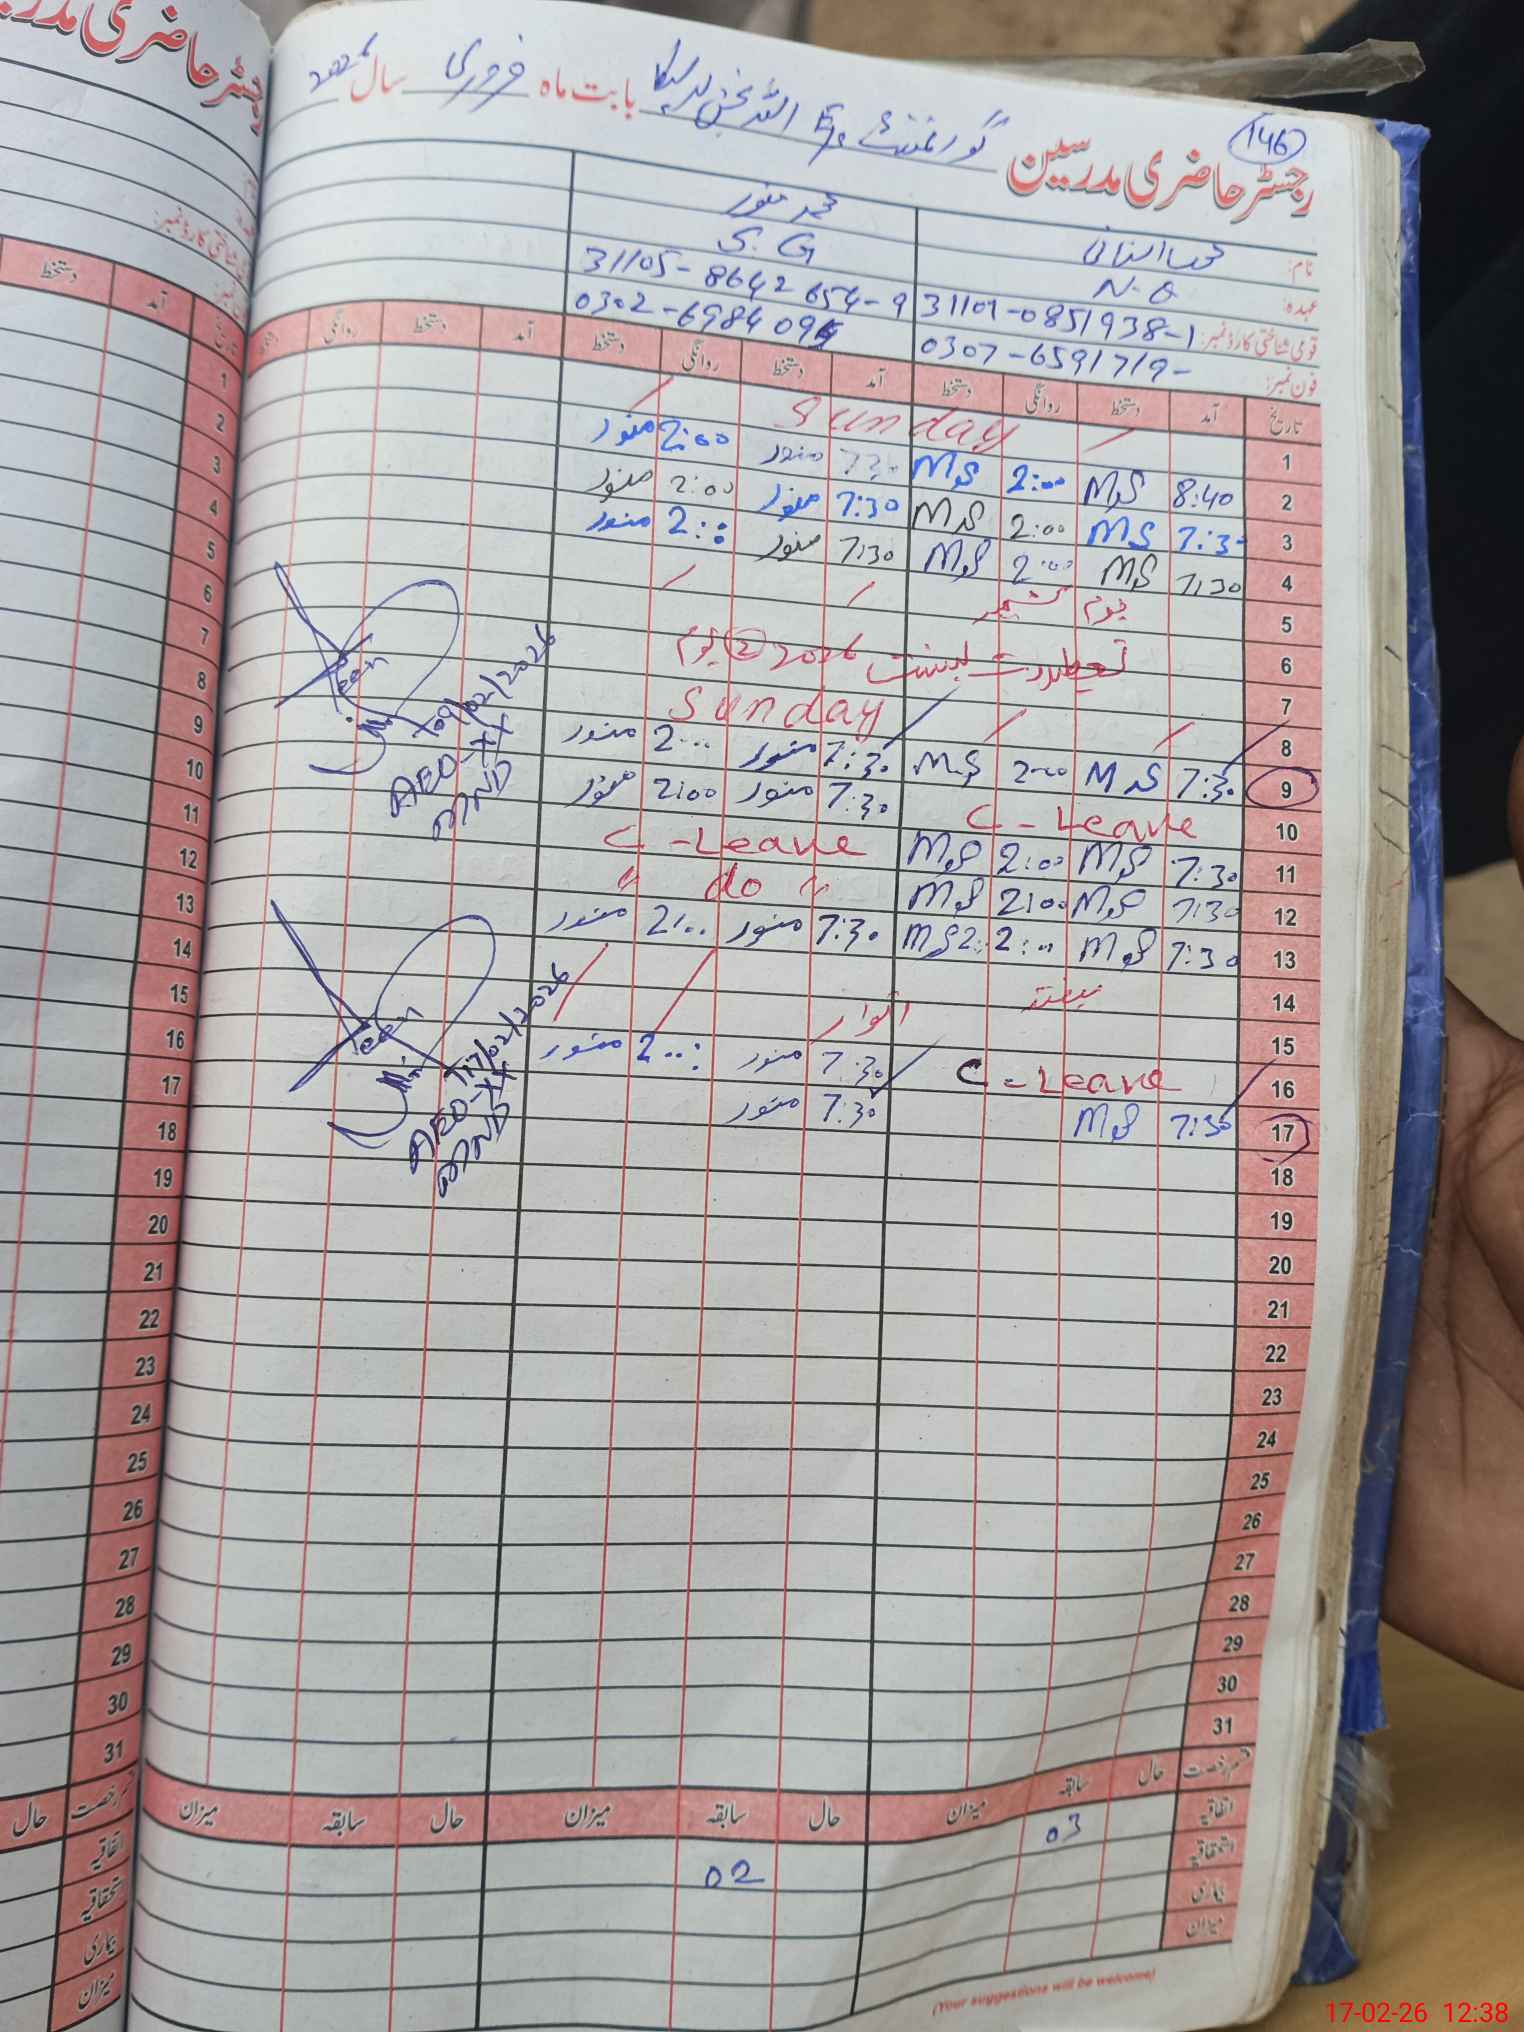 146
رجسٹر حاضری مدرسین گورنمنٹ E/S اللہ بخش بابت ماہ فروری سال 2026
نام: محمد منور
عہدہ: N.Q S.G
قومی شناختی کارڈ نمبر: 31101-0851938-1 31105-8642654-9
فون نمبر: 0307-6591719- 0302-6984095
تاریخ آمد دستخط روانگی دستخط آمد دستخط روانگی دستخط آمد دستخط روانگی
1 Sunday
2 8:40 M.S 2:00 M.S 7:30 منور 2:00 منور
3 7:30 M.S 2:00 M.S 7:30 منور 2:00 منور
4 7:30 M.S 2:00 M.S 7:30 منور 2:00 منور
5 یوم کشمیر
6 تعطیلات بسنت 2026 2 یوم
7
8 Sunday
9 7:30 M.S 2:00 M.S 7:30 منور 2:00 منور
10 C-Leave 7:30 منور 2:00 منور
11 7:30 M.S 2:00 M.S C-Leave
12 7:30 M.S 2:00 M.S " do "
13 7:30 M.S 2:00 M.S 7:30 منور 2:00 منور
14 ہفتہ
15 اتوار
16 C-Leave 7:30 منور 2:00 منور
17 7:30 M.S 7:30 منور
18
19
20
21
22
23
24
25
26
27
28
29
30
31
09/02/2026
AEO-XX
MND
17/02/2026
AEO-XX
MND
قسم رخصت حال سابقہ میزان حال سابقہ میزان حال سابقہ میزان
اتفاقیہ 03 02
استحقاقیہ
بیماری
میزان
(Your suggestions will be welcome)
رجسٹر حاضری
تاریخ آمد دستخط
1
2
3
4
5
6
7
8
9
10
11
12
13
14
15
16
17
18
19
20
21
22
23
24
25
26
27
28
29
30
31
قسم رخصت حال
اتفاقیہ
استحقاقیہ
بیماری
میزان
17-02-26 12:38